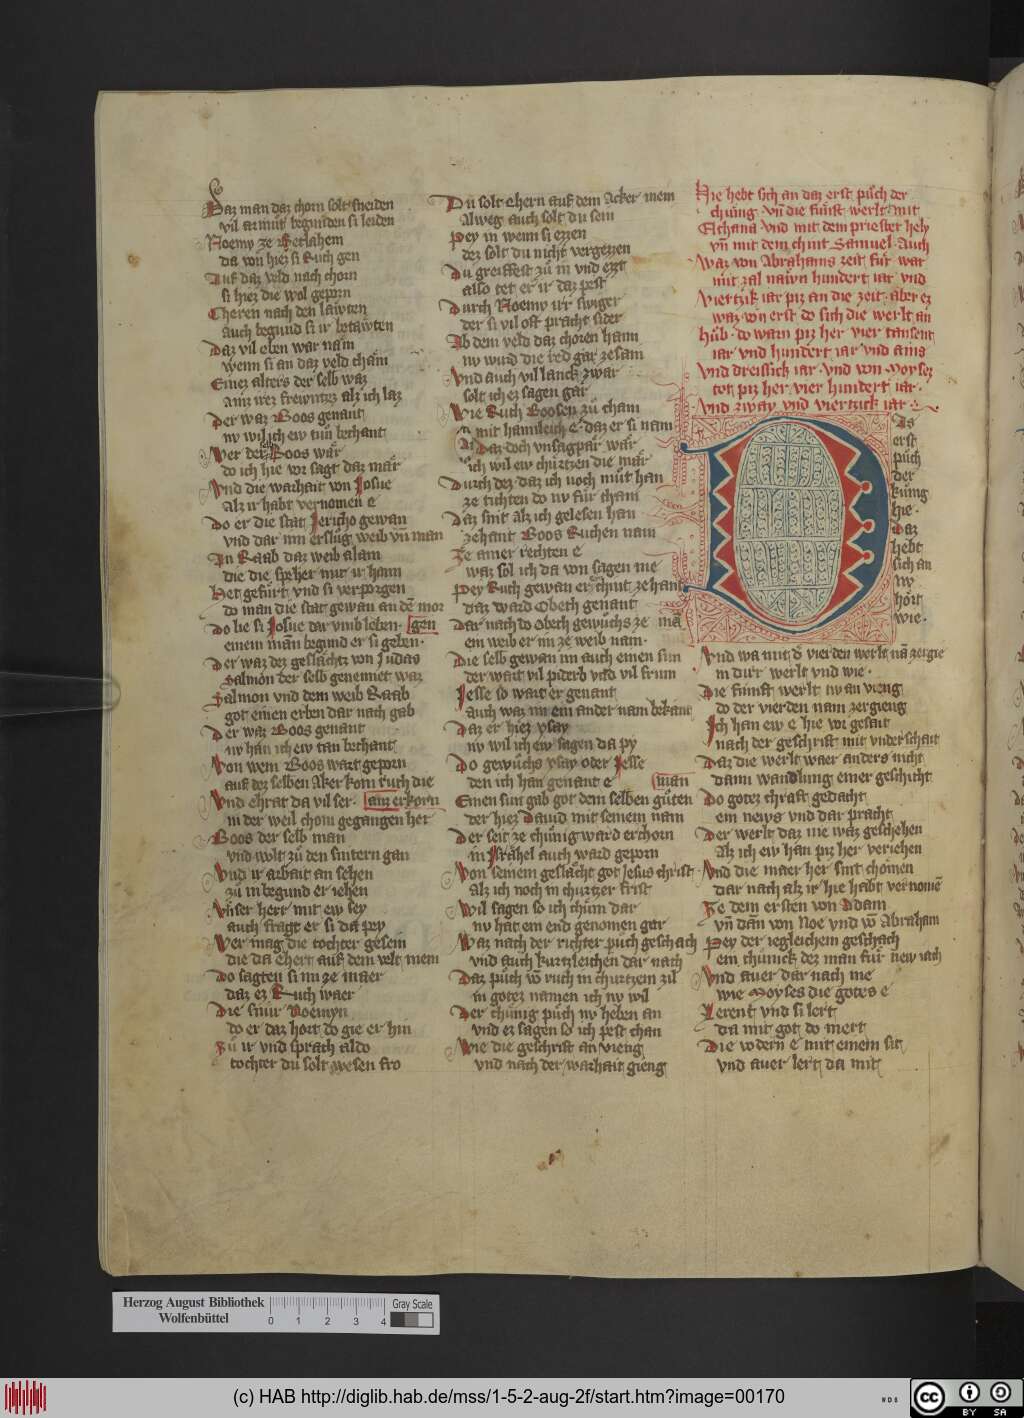 Daz man daz chorn solt sneiden
vil armüt begunden si leiden
Noemy ze Betlahem
da von hiez si Ruch gen
Auf daz veld nach chorn
si hiez die wol geporn
Cheren nach den läwten
auch begund si ir betäwten
Daz vil eben war nam
wenn si an daz veld cham
Einez alters der selb waz
ainz irez frewntzs alz ich laz
Der waz Boos genant
nv wil ich ew tün bechant
Wer der Boos wär
do ich hie vor sagt daz mär
Vnd die warhait von Josue
Alz ir habt vernomen e
Do er die stat Jericho gewan
vnd dar inn erslüg weib vnd man
An Raab daz weib alain
die die speher mit ir hann
Het gefürt vnd si verporgen
do man die stat gewan an dem mor
Do lie si Josue dar vmb leben · gen
einem man begund er si geben ·
Der waz dez geslächtz von Judas
Salmon der selb genennet waz
Salmon vnd dem weib Raab
got einen erben dar nach gab
Der waz Boos genant
nv han ich ew tan bechant
Von wem Boos wart geporn
auf dez selben Aker kom ruch die
Vnd ehrat da vil ser · ain erkorn
in der weil chom gegangen her
Boos der selb man
vnd wolt zü den sintern gan
Vnd ir arbait an sehen
zü in begund er iehen
Vnser herr mit ew sey
auch fragt er si da pey
Wer mag die tochter gesein
die da ehert auf dem velt mein
Do sagten si im ze maer
daz ez Ruch waer
Die snür Noemyn
do er daz hort do gie er hin
Zü ir vnd sprach aldo
tochter dü solt wesen fro
Dü solt ehern auf dem Acker mein
Alweg auch solt du sein
Pey in wenn si ezzen
dez solt du nicht vergezzen
Du greiffest zü in vnd ezzt
also tet er ir daz pest
Durch Noemy irr swiger
der si vil oft pracht sider
Ab dem veld daz choren hann
nv wird die red gar zesam
Vnd auch vil lanck zwar
solt ich ez sagen gar
Wie Ruch Boosen zü cham
mit hainleich e daz er si nam
Daz doch vnsagpär wär
ich wil ew chürtzen die mär
Durch dez daz ich noch müt han
ze tichten do nv für cham
Daz sint alz ich gelesen han
zehant Boos Ruchen nam
Ze ainer rechten e
waz sol ich da von sagen me
Pey Ruch gewan er chint zehant
daz ward Obeth genant
Dar nach do Obeth gewüchs ze man
ein weib er im ze weib nam ·
Die selb gewan im auch einen sun
der wart vil piderb vnd vil frum
Jesse so wart er genant
auch waz im ein ander nam bekant
Daz er hiez ysay
nv wil ich ew sagen da py
Do gewüchs ysay oder Jesse
den ich han genant e man
Einen sun gab got dem selben güten
der hiez Dauid mit seinem nam
Der seit ze chünig ward erchorn
in Jsrahel auch ward geporn
Von seinem geslächt got Jesus christ
alz ich noch in churtzer frist
Wil sagen so ich chüm dar
nv hat ein end genomen gar
Waz nach der richter püch geschach
vnd auch kurtzleichen dar nach
Daz püch von ruch in churtzem zil
in gotez namen ich nv wil
Der chünig püch nv heben an
vnd ez sagen so ich pest chan
Wie die geschrift an vieng
vnd nach der warhait gieng
Hie hebt sich an daz erst püch der
chünig · vnd die fünft werlt mit
Elchana vnd mit dem priester hely
vnd mit dem chint Samuel · Auch
waz von Abrahams zeit für war
mit zal naiwn hundert iar vnd
viertzik iar piz an die zeit · aber ez
waz von erst do sich die werlt an
hüb · do warn piz her vier tausent
iar vnd hundert iar vnd ains
vnd dreissick iar · vnd von Moyses
tot piz her · vier hundert iar ·
vnd zway vnd viertzick iar ·
Das
erst
püch
der
küng
hie ·
daz
hebt
sich an
nv
hört
wie ·
Vnd wa mit der vierden werlt nam zergie
in dirr werlt vnd wie ·
Die fünft werlt nv an vieng
do der vierden nam zergieng
Ich han ew e hie vor gesait
nach der geschrift mit vnderschait
Daz die werlt waer anders nicht
dann wandlung einer geschicht
Do gotez chraft gedacht
ein news vnd dar pracht
Der werlt daz nie waz geschehen
Alz ich ew han piz her veriehen
Vnd die maer her sint chömen
dar nach alz ir hie habt vernomen
Ze dem ersten von Adam
vnd dann von Noe vnd von Abraham
Pey der iegleichem geschach
ein chünick dez man für new iach
Vnd auer dar nach me
wie Moyses die gotes e
Lerent vnd si lert
da mit got do mert
Die vodern e mit einem sit
vnd auer lert da mit
Herzog August Bibliothek
Wolfenbüttel
0 1 2 3 4
Gray Scale
(c) HAB http://diglib.hab.de/mss/1-5-2-aug-2f/start.htm?image=00170
WDB
cc BY SA